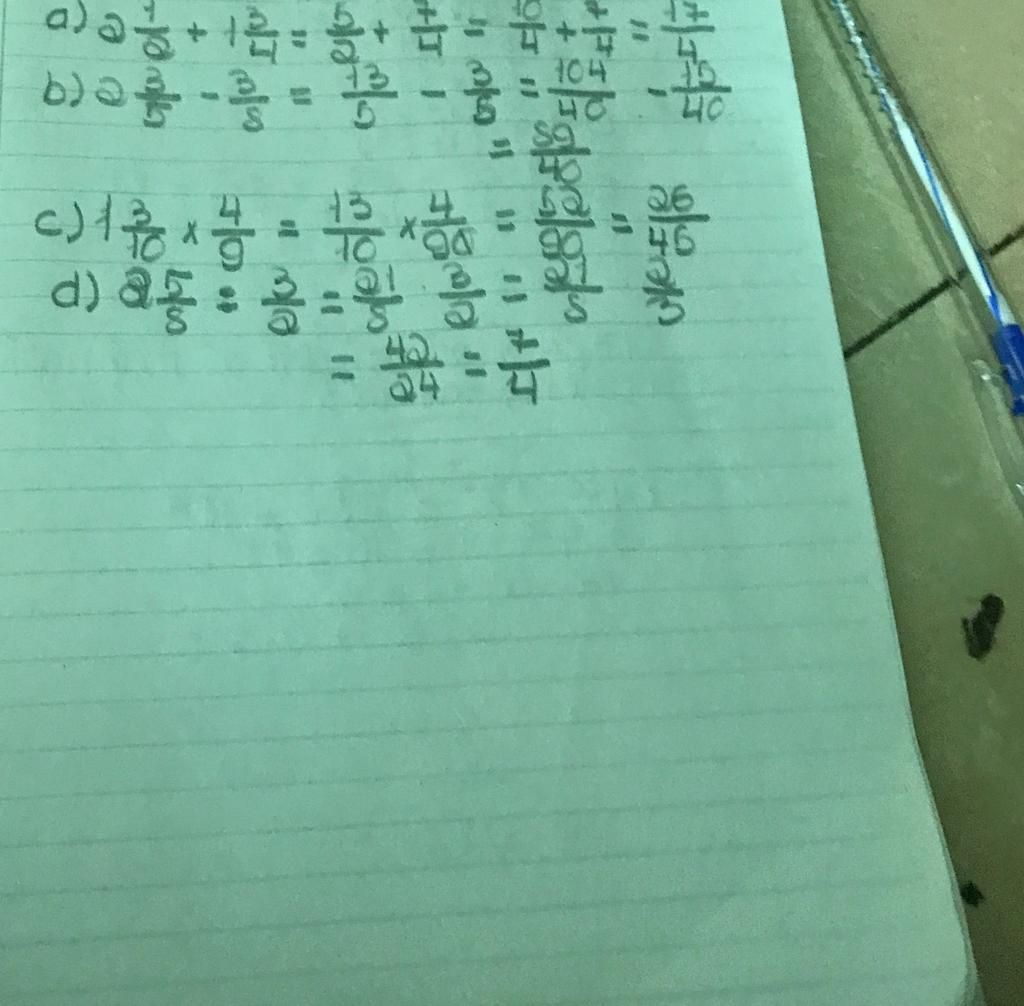 a) 2 1/2 + 1 3/4 = 5/2 + 7/4 = 10/4 + 7/4 = 17/4
b) 2 3/5 - 3/8 = 13/5 - 3/8 = 104/40 - 15/40
= 89/40
c) 1 3/10 x 4/9 = 13/10 x 4/90 = 52/90 = 26/45
d) 2 5/8 : 3/2 = 21/8 3/2 = 21/8 2/3
= 42/24 = 7/4